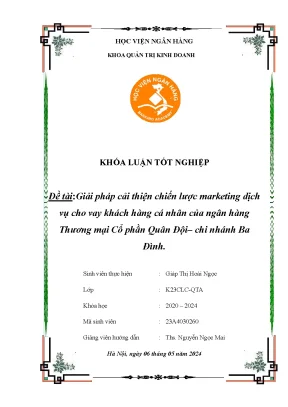 HỌC VIỆN NGÂN HÀNG
KHOA QUẢN TRỊ KINH DOANH
HỌC VIỆN NGÂN HÀNG
BANKING ACADEMY
KHÓA LUẬN TỐT NGHIỆP
Đề tài:Giải pháp cải thiện chiến lược marketing dịch
vụ cho vay khách hàng cá nhân của ngân hàng
Thương mại Cổ phần Quân Đội– chi nhánh Ba
Đình.
Sinh viên thực hiện : Giáp Thị Hoài Ngọc
Lớp : K23CLC-QTA
Khóa học : 2020 – 2024
Mã sinh viên : 23A4030260
Giảng viên hướng dẫn : Ths. Nguyễn Ngọc Mai
Hà Nội, ngày 06 tháng 05 năm 2024